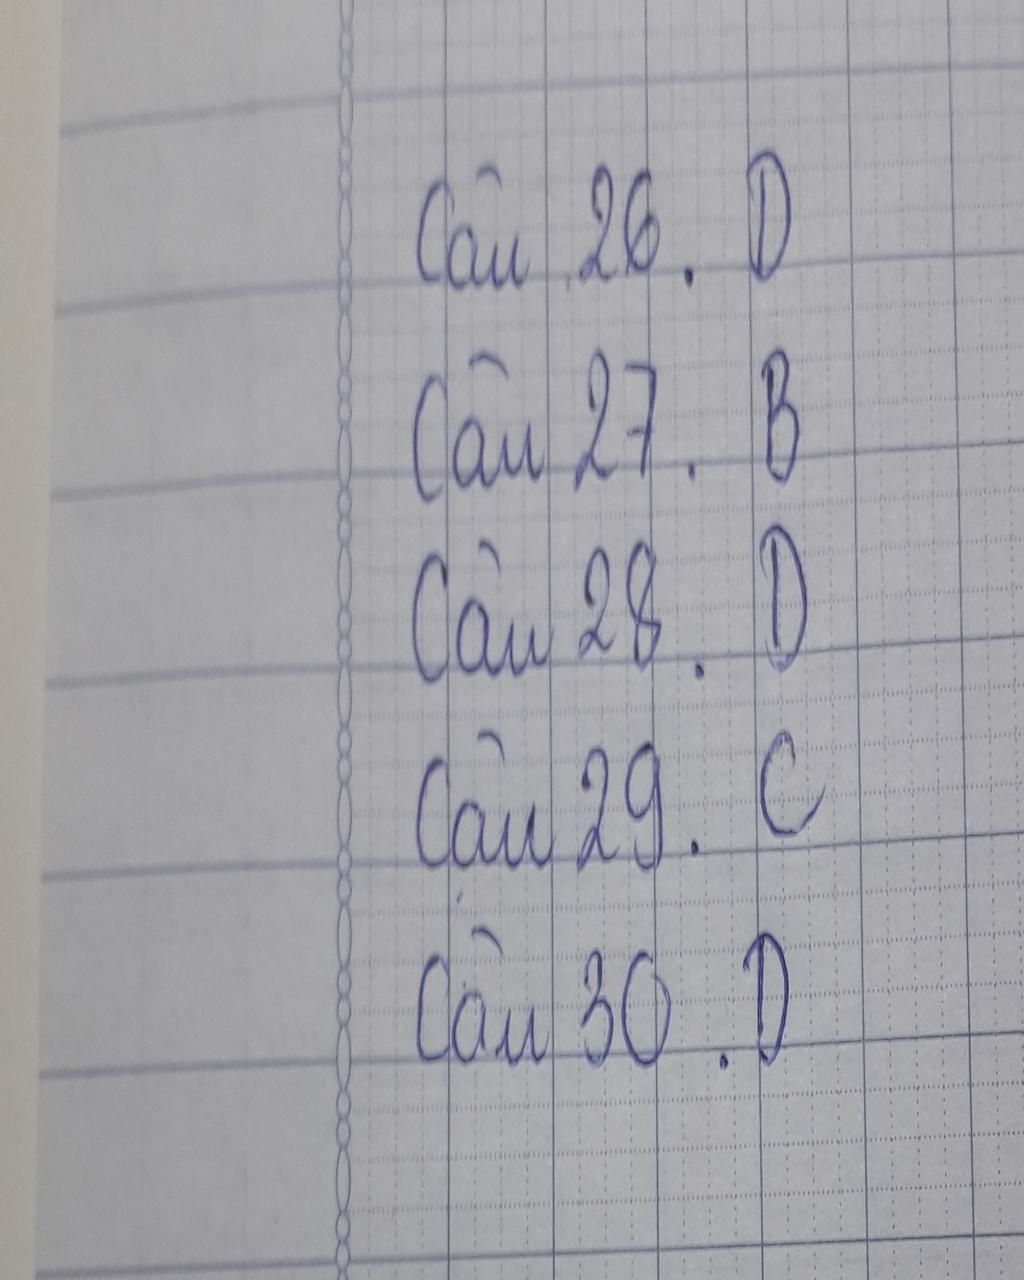 Câu 26. D
Câu 27. B
Câu 28. D
Câu 29. C
Câu 30. D